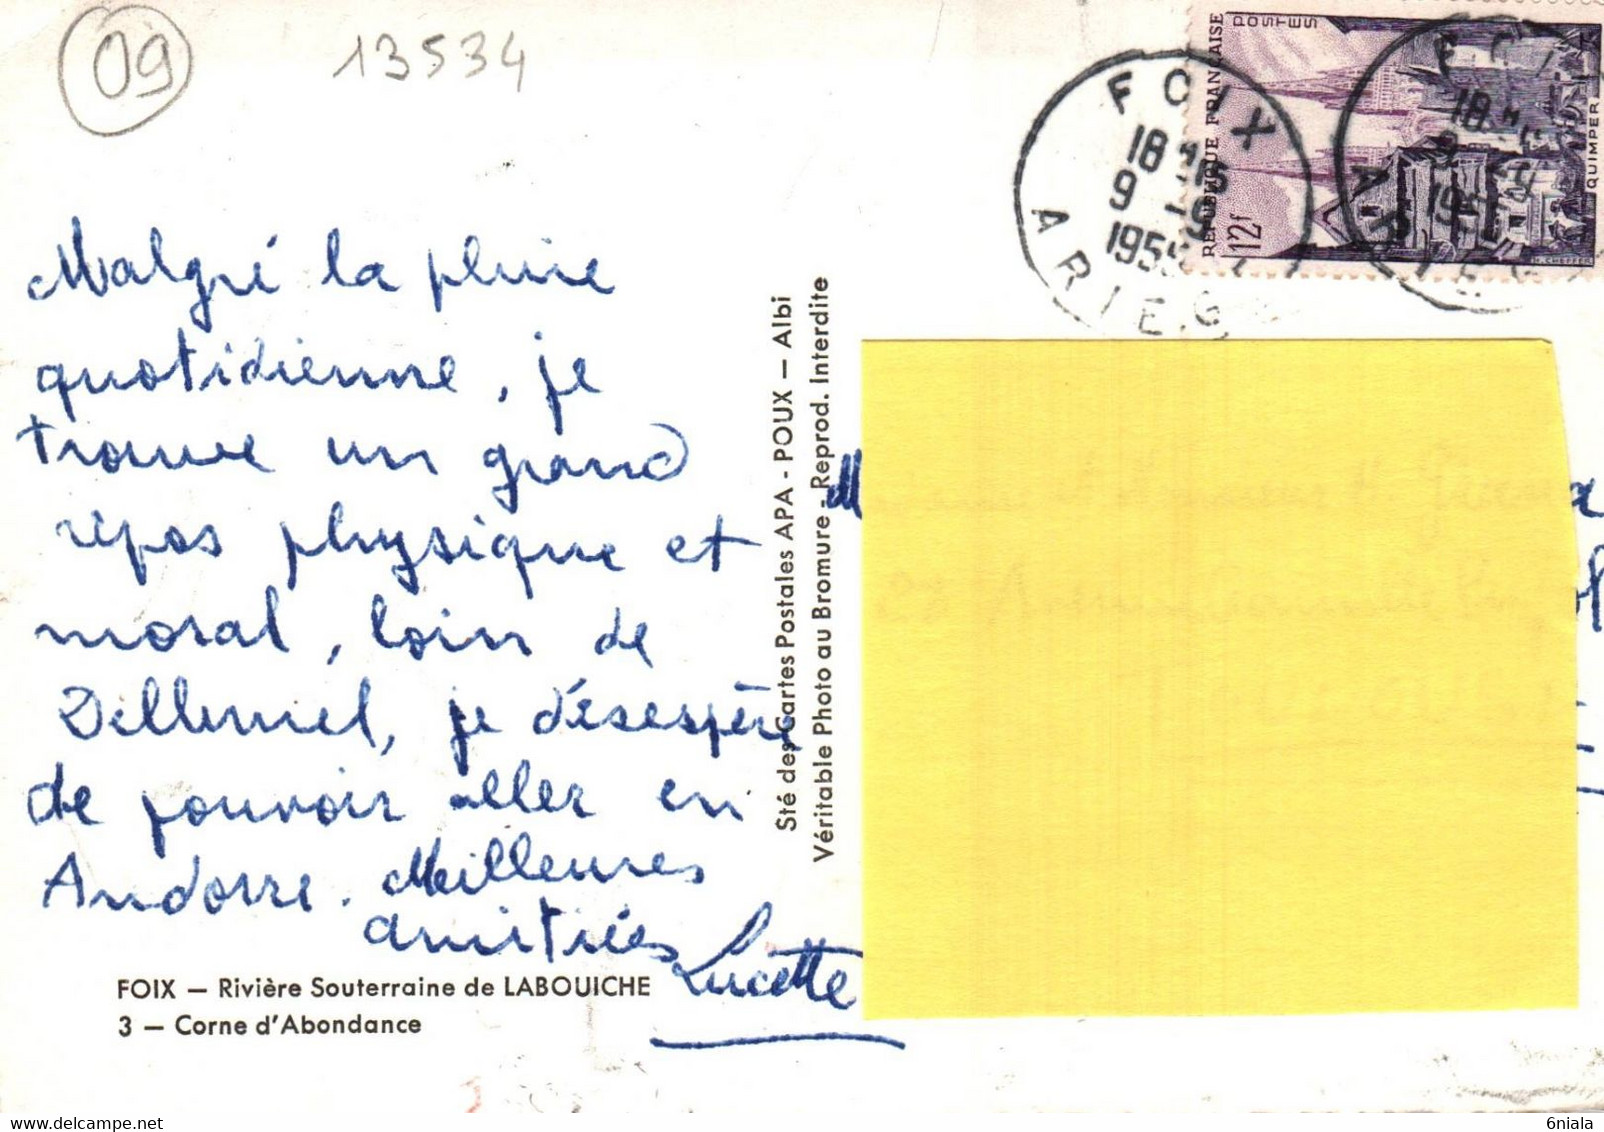 09
13534
FOIX
18 H 15
9 - 9
1955
ARIEGE
POSTES
REPUBLIQUE FRANÇAISE
12f
QUIMPER
Malgré la pluie
quotidienne, je
trouve un grand
repos physique et
moral, loin de
je désespère
de pouvoir aller en
Andorre. Meilleures
amitiés
Lucette
Sté des Cartes Postales APA - POUX — Albi
Véritable Photo au Bromure - Reprod. Interdite
M
FOIX — Rivière Souterraine de LABOUICHE
3 — Corne d'Abondance
https://www.delcampe.net
6niala